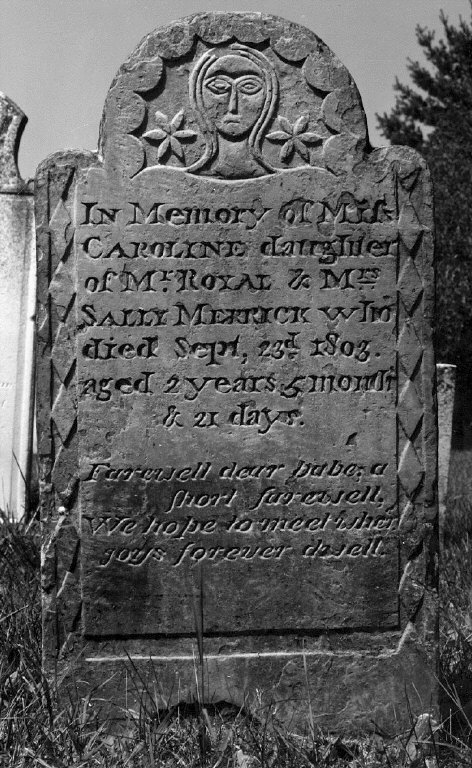 In Memory of Miſs
CAROLINE daughter
of Mr. ROYAL & Mrs
SALLY MERRICK who
died Sept, 23d. 1803.
aged 2 years 5 month
& 21 days.
Farewell dear babe; a
short farewell,
We hope to meet wher
joys forever dwell.